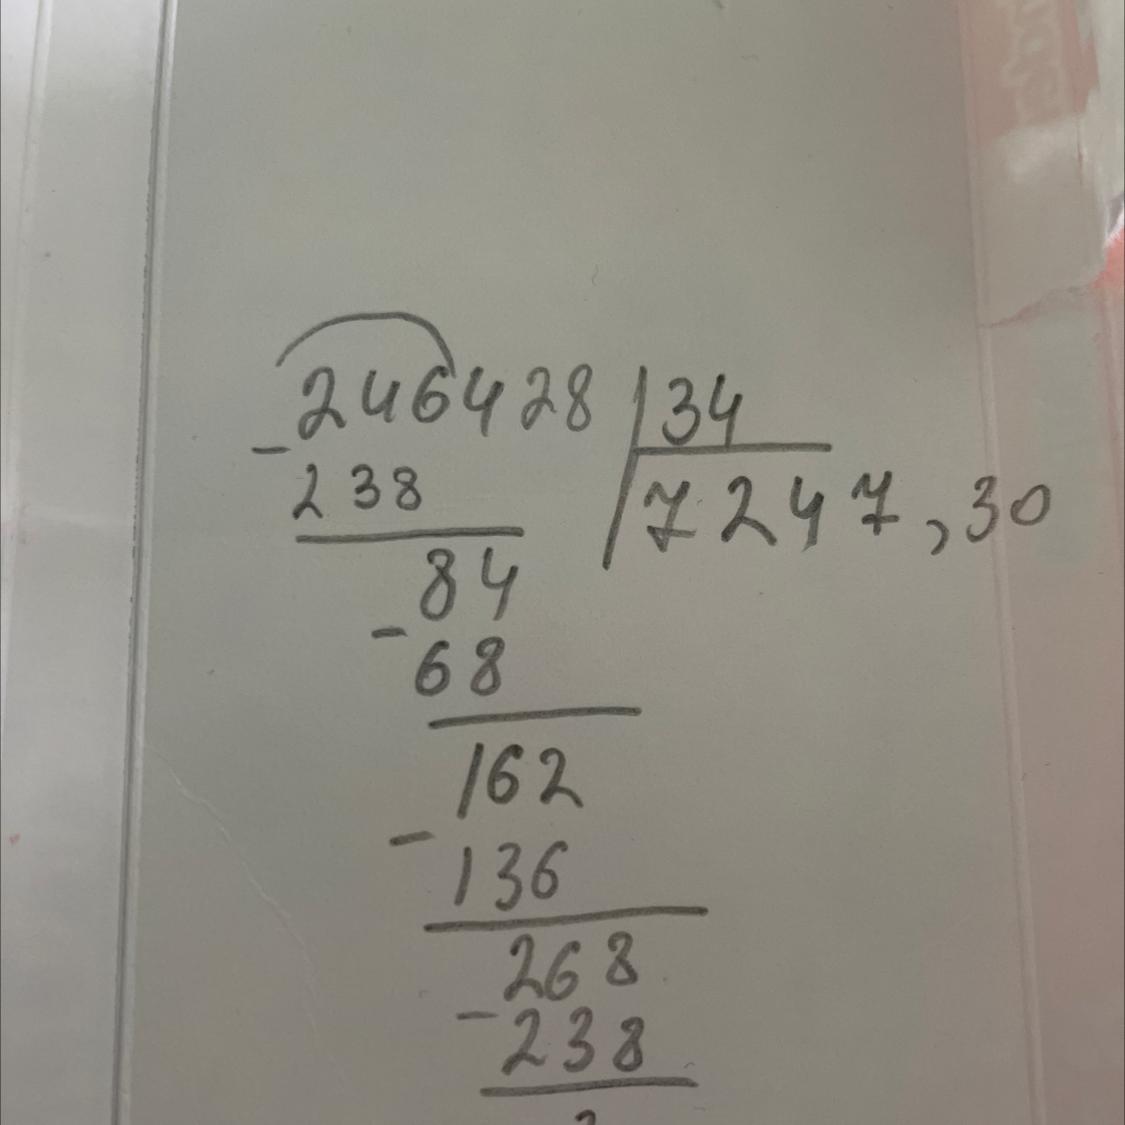 246428 34
- 238 7247,30
84
- 68
162
- 136
268
- 238